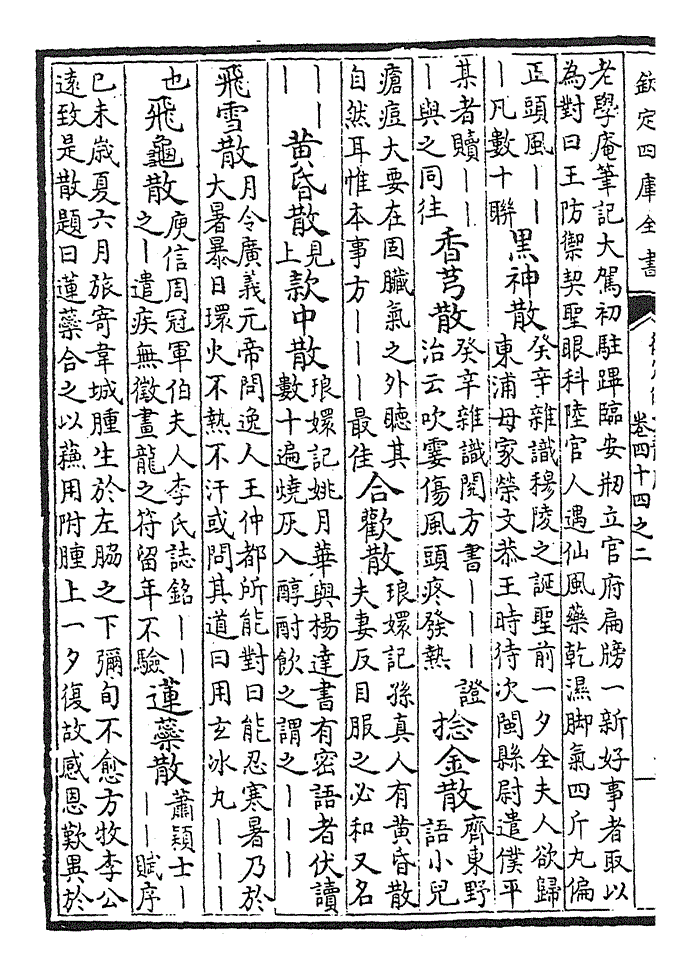 欽定四庫全書
卷四十四之二
老學庵筆記大駕初駐蹕臨安剏立官府扁牓一新好事者取以
為對曰王防禦契聖眼科陸官人遇仙風藥乾濕脚氣四斤丸偏
正頭風丨丨
丨凡數十聯
黑神散
癸辛雜識穆陵之誕聖前一夕全夫人欲歸
東浦母家榮文恭王時待次閩縣尉遣僕平
某者贖丨丨
丨與之同往
香芎散
癸辛雜識閱方書丨丨丨證
治云吹霎傷風頭疼發熱
捻金散
齊東野
語小兒
瘡痘大要在固臟氣之外聽其
自然耳惟本事方丨丨丨最佳
合歡散
琅嬛記孫真人有黃昏散
夫妻反目服之必和又名
丨丨
丨
黃昏散
見
上
款中散
琅嬛記姚月華與楊達書有密語者伏讀
數十遍燒灰入醇酎飲之謂之丨丨丨
飛雪散
月令廣義元帝問逸人王仲都所能對曰能忍寒暑乃於
大暑暴日環火不熱不汗或問其道曰用玄冰丸丨丨丨
也
飛龜散
庾信周冠軍伯夫人李氏誌銘丨丨
之丨遣疾無徵畫龍之符留年不驗
蓮蘂散
蕭穎士丨
丨丨賦序
己未歲夏六月旅寄韋城腫生於左脇之下彌旬不愈方牧李公
遠致是散題曰蓮蘂合之以蘓用附腫上一夕復故感恩歎異於